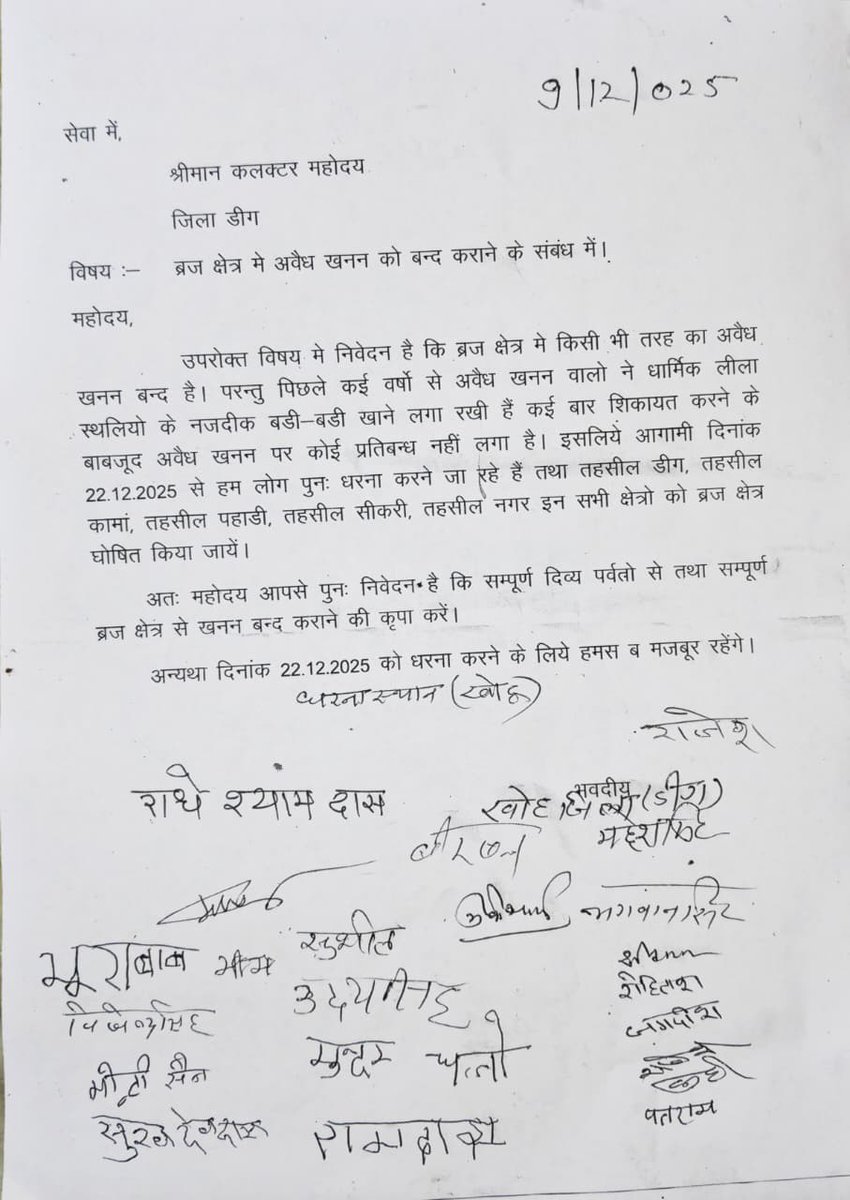 9/12/025
सेवा में,
श्रीमान कलक्टर महोदय
जिला डीग
विषय :– ब्रज क्षेत्र मे अवैध खनन को बन्द कराने के संबंध में।
महोदय,
उपरोक्त विषय मे निवेदन है कि ब्रज क्षेत्र मे किसी भी तरह का अवैध
खनन बन्द है। परन्तु पिछले कई वर्षो से अवैध खनन वालो ने धार्मिक लीला
स्थलियो के नजदीक बडी–बडी खाने लगा रखी हैं कई बार शिकायत करने के
बाबजूद अवैध खनन पर कोई प्रतिबन्ध नहीं लगा है। इसलिये आगामी दिनांक
22.12.2025 से हम लोग पुनः धरना करने जा रहे हैं तथा तहसील डीग, तहसील
कामां, तहसील पहाडी, तहसील सीकरी, तहसील नगर इन सभी क्षेत्रो को ब्रज क्षेत्र
घोषित किया जायें।
अतः महोदय आपसे पुनः निवेदन है कि सम्पूर्ण दिव्य पर्वतो से तथा सम्पूर्ण
ब्रज क्षेत्र से खनन बन्द कराने की कृपा करें।
अन्यथा दिनांक 22.12.2025 को धरना करने के लिये हमस ब मजबूर रहेंगे।
धरना स्थान (खोह)
राजेश
राधे श्याम दास
भवदीय
खोह जिला (डीग)
बीरबल
भगवान सिंह
भूरा बाबा भीम सुशील
श्रीमन
विजेन्द्र सिंह उदय सिंह रोहिताश
जगदीश
मोन्टी सैन सुन्दर
रामदास
पतराम